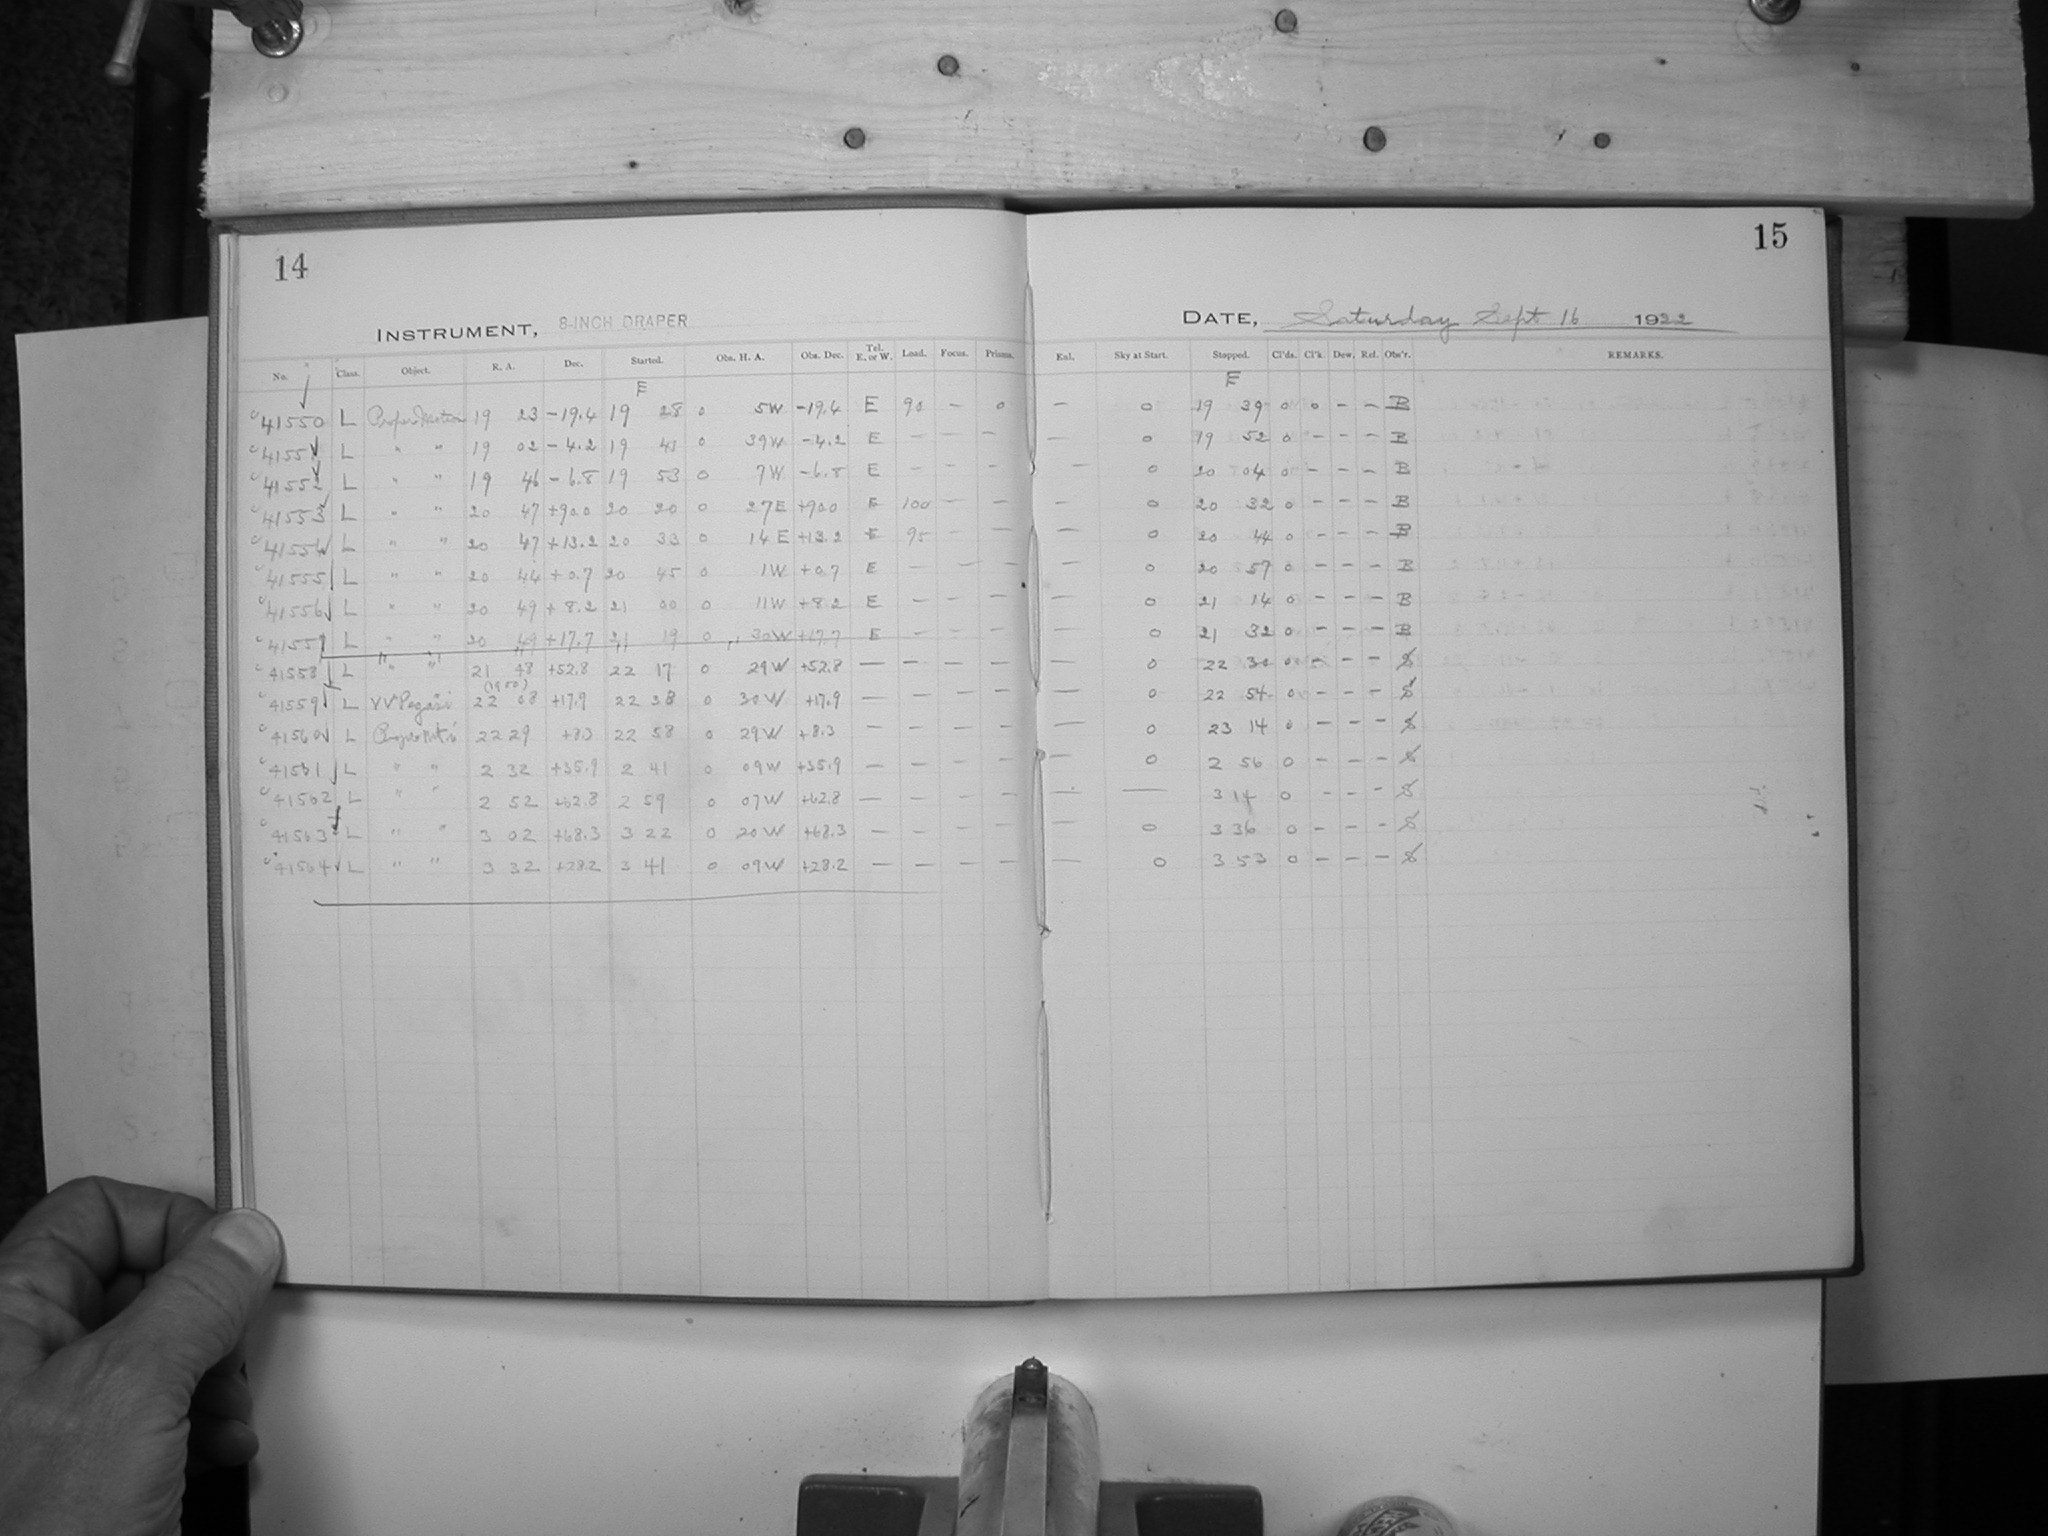 14
15
INSTRUMENT, 8-INCH DRAPER
DATE, Saturday Sept 16 1922
No. Class. Object. R. A. Dec. Started. Obs. H. A. Obs. Dec. Tel. E. or W. Load. Focus. Prisms. Enl. Sky at Start. Stopped. Cl'ds. Cl'k. Dew. Ref. Obs'r. REMARKS.
E E
c 41550 L Proper Motion 19 23 -19.4 19 28 0 5W -19.4 E 90 - 0 - 0 19 39 0 0 - - B
c 41551 L " " 19 02 -4.2 19 41 0 39W -4.2 E - - - - 0 19 52 0 - - - B
c 41552 L " " 19 46 -6.8 19 53 0 7W -6.8 E - - - - 0 20 04 0 - - - B
c 41553 L " " 20 47 +90.0 20 20 0 27E +90.0 E 100 - - - 0 20 32 0 - - - B
c 41554 L " " 20 47 +13.2 20 33 0 14E +13.2 E 95 - - - 0 20 44 0 - - - B
c 41555 L " " 20 44 +0.7 20 45 0 1W +0.7 E - - - - 0 20 57 0 - - - B
c 41556 L " " 20 49 +8.2 21 00 0 11W +8.2 E - - - - 0 21 14 0 - - - B
c 41557 L " " 20 49 +17.7 21 19 0 30W +17.7 E - - - - 0 21 32 0 - - - B
c 41558 L " " 21 48 +52.8 22 17 0 29W +52.8 - - - - - 0 22 30 0 - - - S
(1900)
c 41559 L VV Pegasi 22 08 +17.9 22 38 0 30W +17.9 - - - - - 0 22 54 0 - - - S
c 41560 L 22 29 +8.3 22 58 0 29W +8.3 - - - - - 0 23 14 0 - - - S
c 41561 L " " 2 32 +35.9 2 41 0 09W +35.9 - - - - - 0 2 56 0 - - - S
c 41562 L " " 2 52 +62.8 2 59 0 07W +62.8 - - - - - — 3 14 0 - - - S
c 41563 L " " 3 02 +68.3 3 22 0 20W +68.3 - - - - - 0 3 36 0 - - - S
c 41564 L " " 3 32 +28.2 3 41 0 09W +28.2 - - - - - 0 3 53 0 - - - S